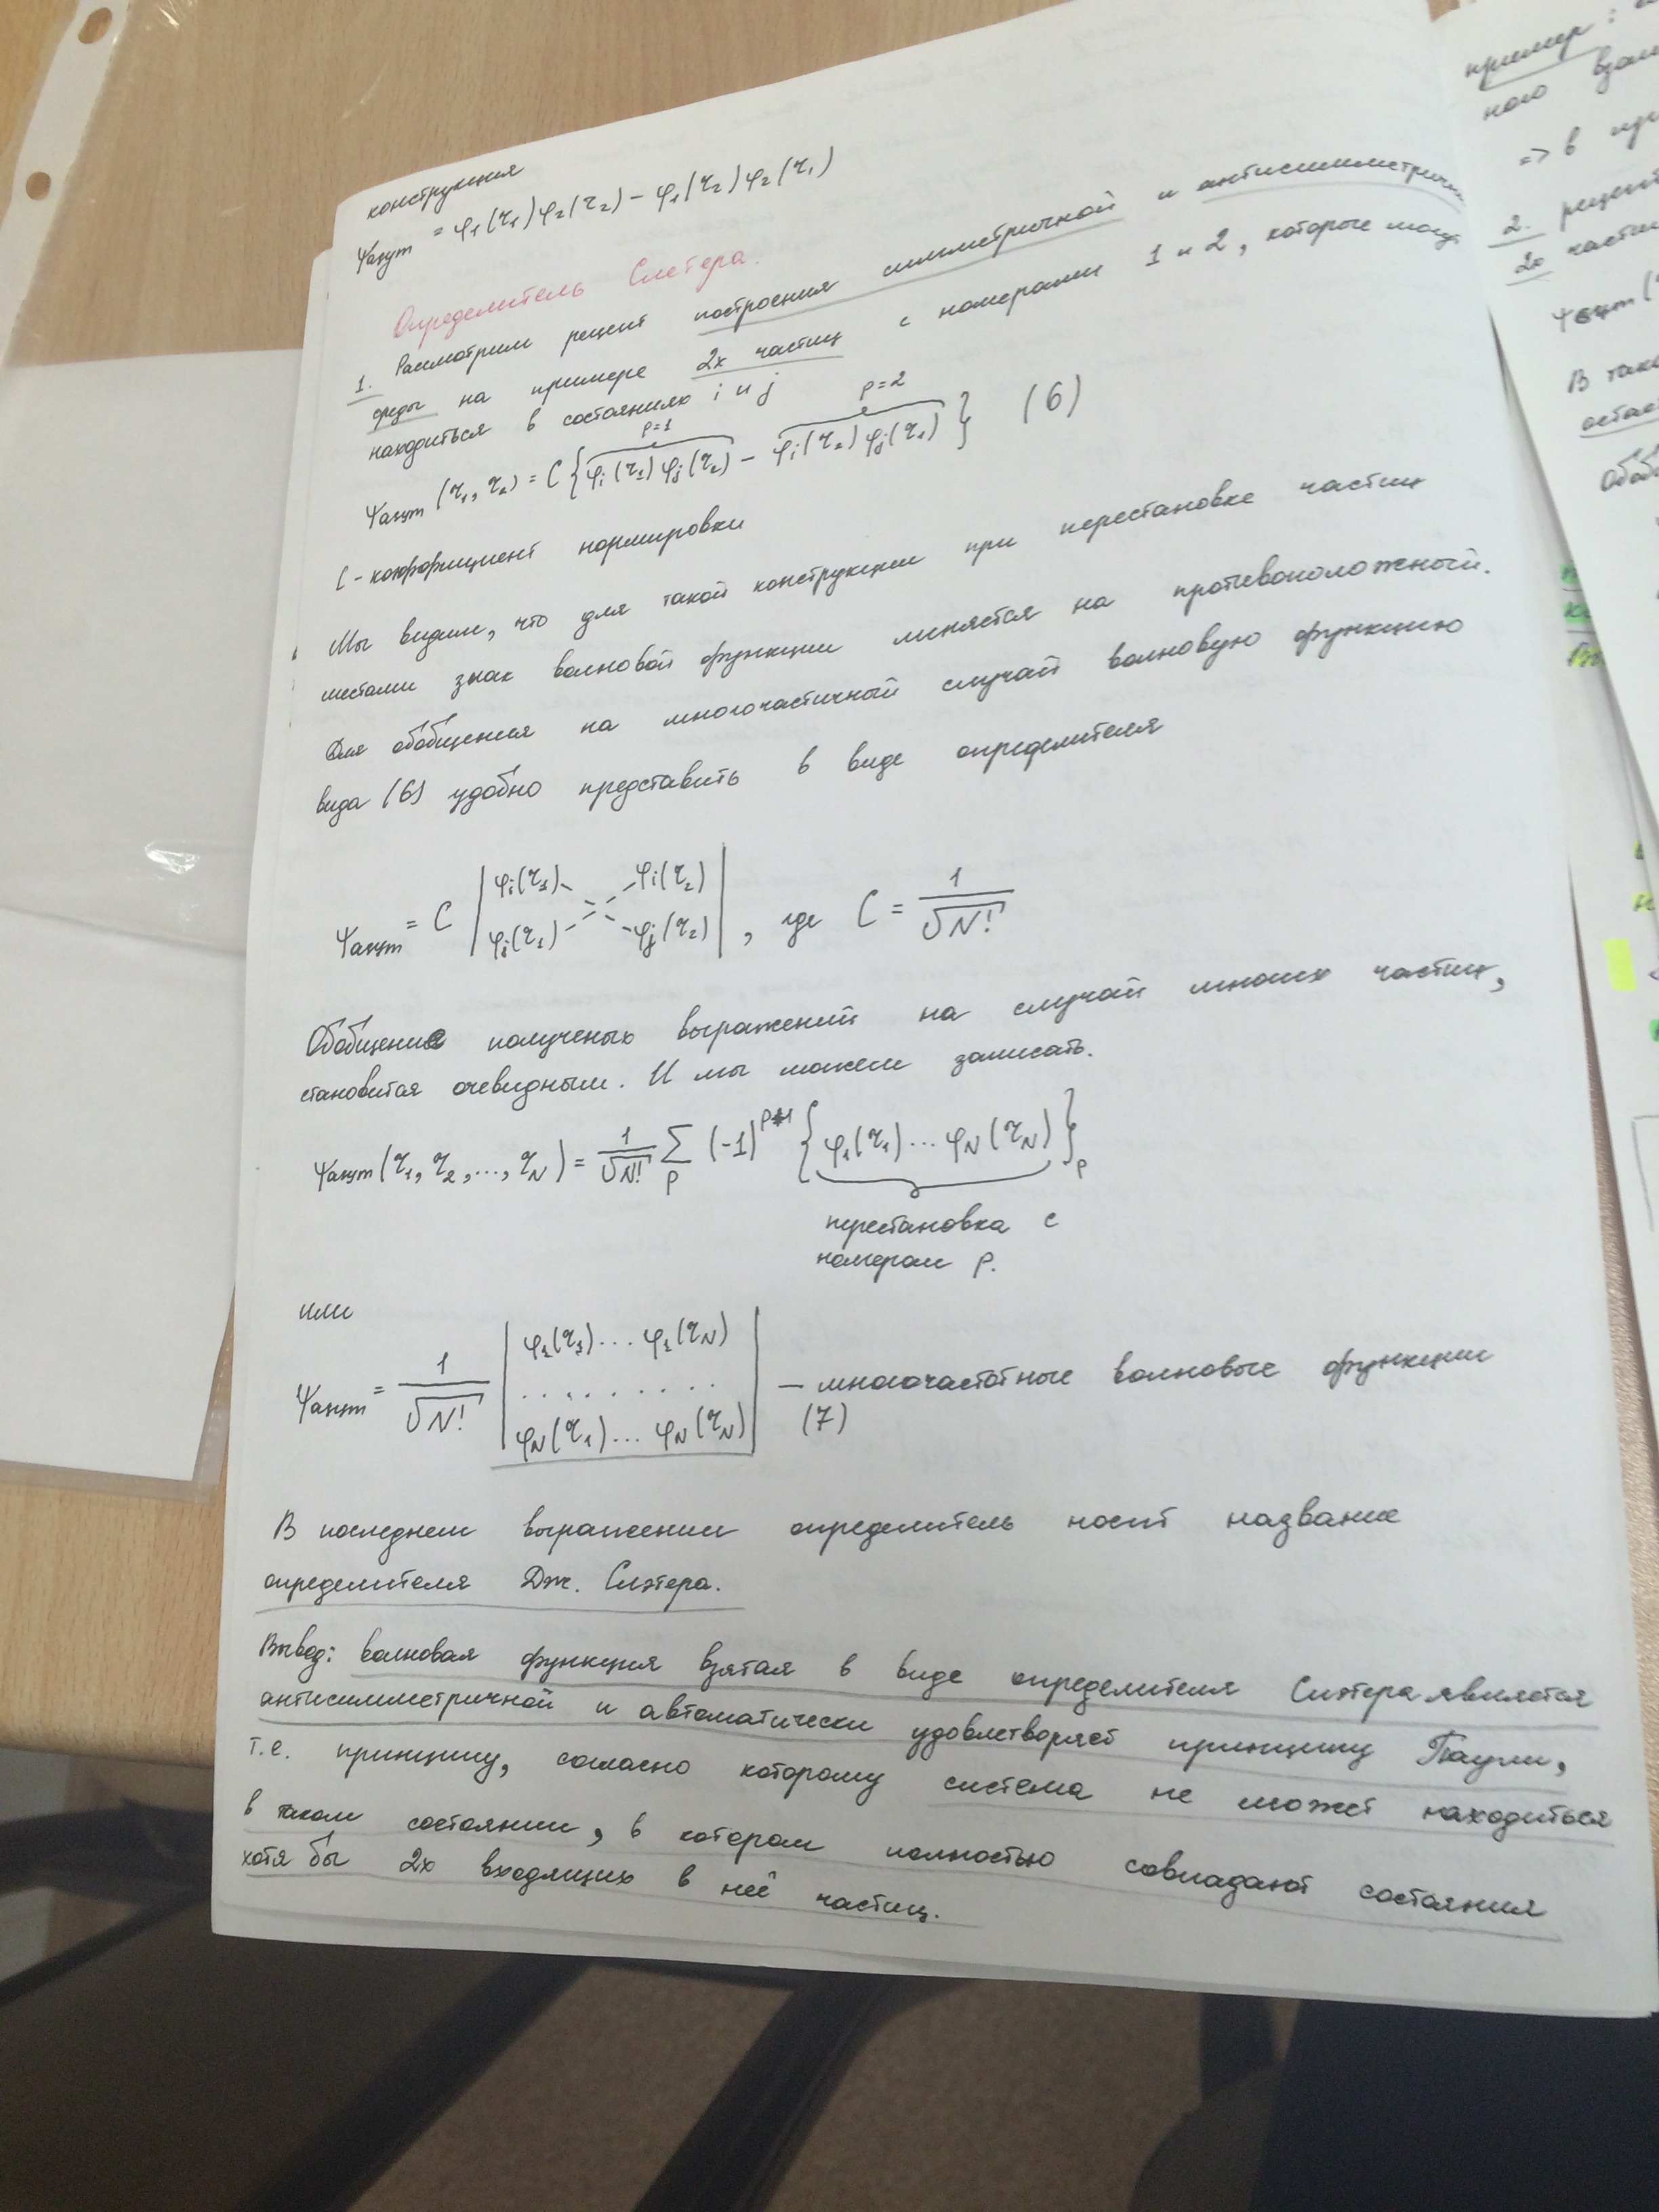 конструкция
Ψант = φ₁(τ₁)φ₂(τ₂) − φ₁(τ₂)φ₂(τ₁)
Определитель Слетера.
1. Рассмотрим рецепт построения симметричной и антисимметричн
среды на примере 2х частиц с номерами 1 и 2, которые могу
находиться в состояниях i и j
p=1 p=2
Ψант (τ₁, τ₂) = C {φi(τ₁) φj(τ₂) − φi(τ₂) φj(τ₁)} (6)
C - коэффициент нормировки
Мы видим, что для такой конструкции при перестановке частиц
местами знак волновой функции меняется на противоположный.
Для обобщения на многочастичный случай волновую функцию
вида (6) удобно представить в виде определителя
Ψант = C | φi(τ₁) φi(τ₂) |
| φj(τ₁) φj(τ₂) | , где C = 1/√N!
Обобщение полученых выражений на случай многих частиц,
становится очевидным. И мы можем записать.
Ψант(τ₁, τ₂, ..., τN) = 1/√N! Σp (-1)^p+1 {φ₁(τ₁) ... φN(τN)}p
перестановка с
номером p.
или
Ψант = 1/√N! | φ₁(τ₁) ... φ₁(τN) |
| . . . . . . . . . | — многочастотные волновые функции
| φN(τ₁) ... φN(τN) | (7)
В последнем выражении определитель носит название
определителя Дж. Слэтера.
Вывод: волновая функция взятая в виде определителя Слэтера является
антисимметричной и автоматически удовлетворяет принципу Паули,
т.е. принципу, согласно которому система не может находиться
в таком состоянии, в котором полностью совпадают состояния
хотя бы 2х входящих в неё частиц.
пример:
ного взаи
=> в
2. рецепт
2х части
В так
остае
Обоб